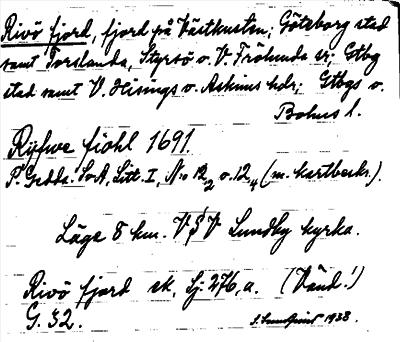 Rivö fjord, fjord på Västkusten; Göteborg stad
samt Torslanda, Styrsö o. V. Frölunda sr; Gtbg
stad samt V. Hisings o. Askims hdr; Gtbgs o.
Bohus l.
Ryfwe fiohl 1691.
P. Gedda: SvA, Litt. I, No 12₂ o. 12₄ (m. kartbeckn.).
Läge 8 km. VSV Lundby kyrka.
Rivö fjord sk, Ej. 276, a. (Vänd!)
G. 32. 1938.